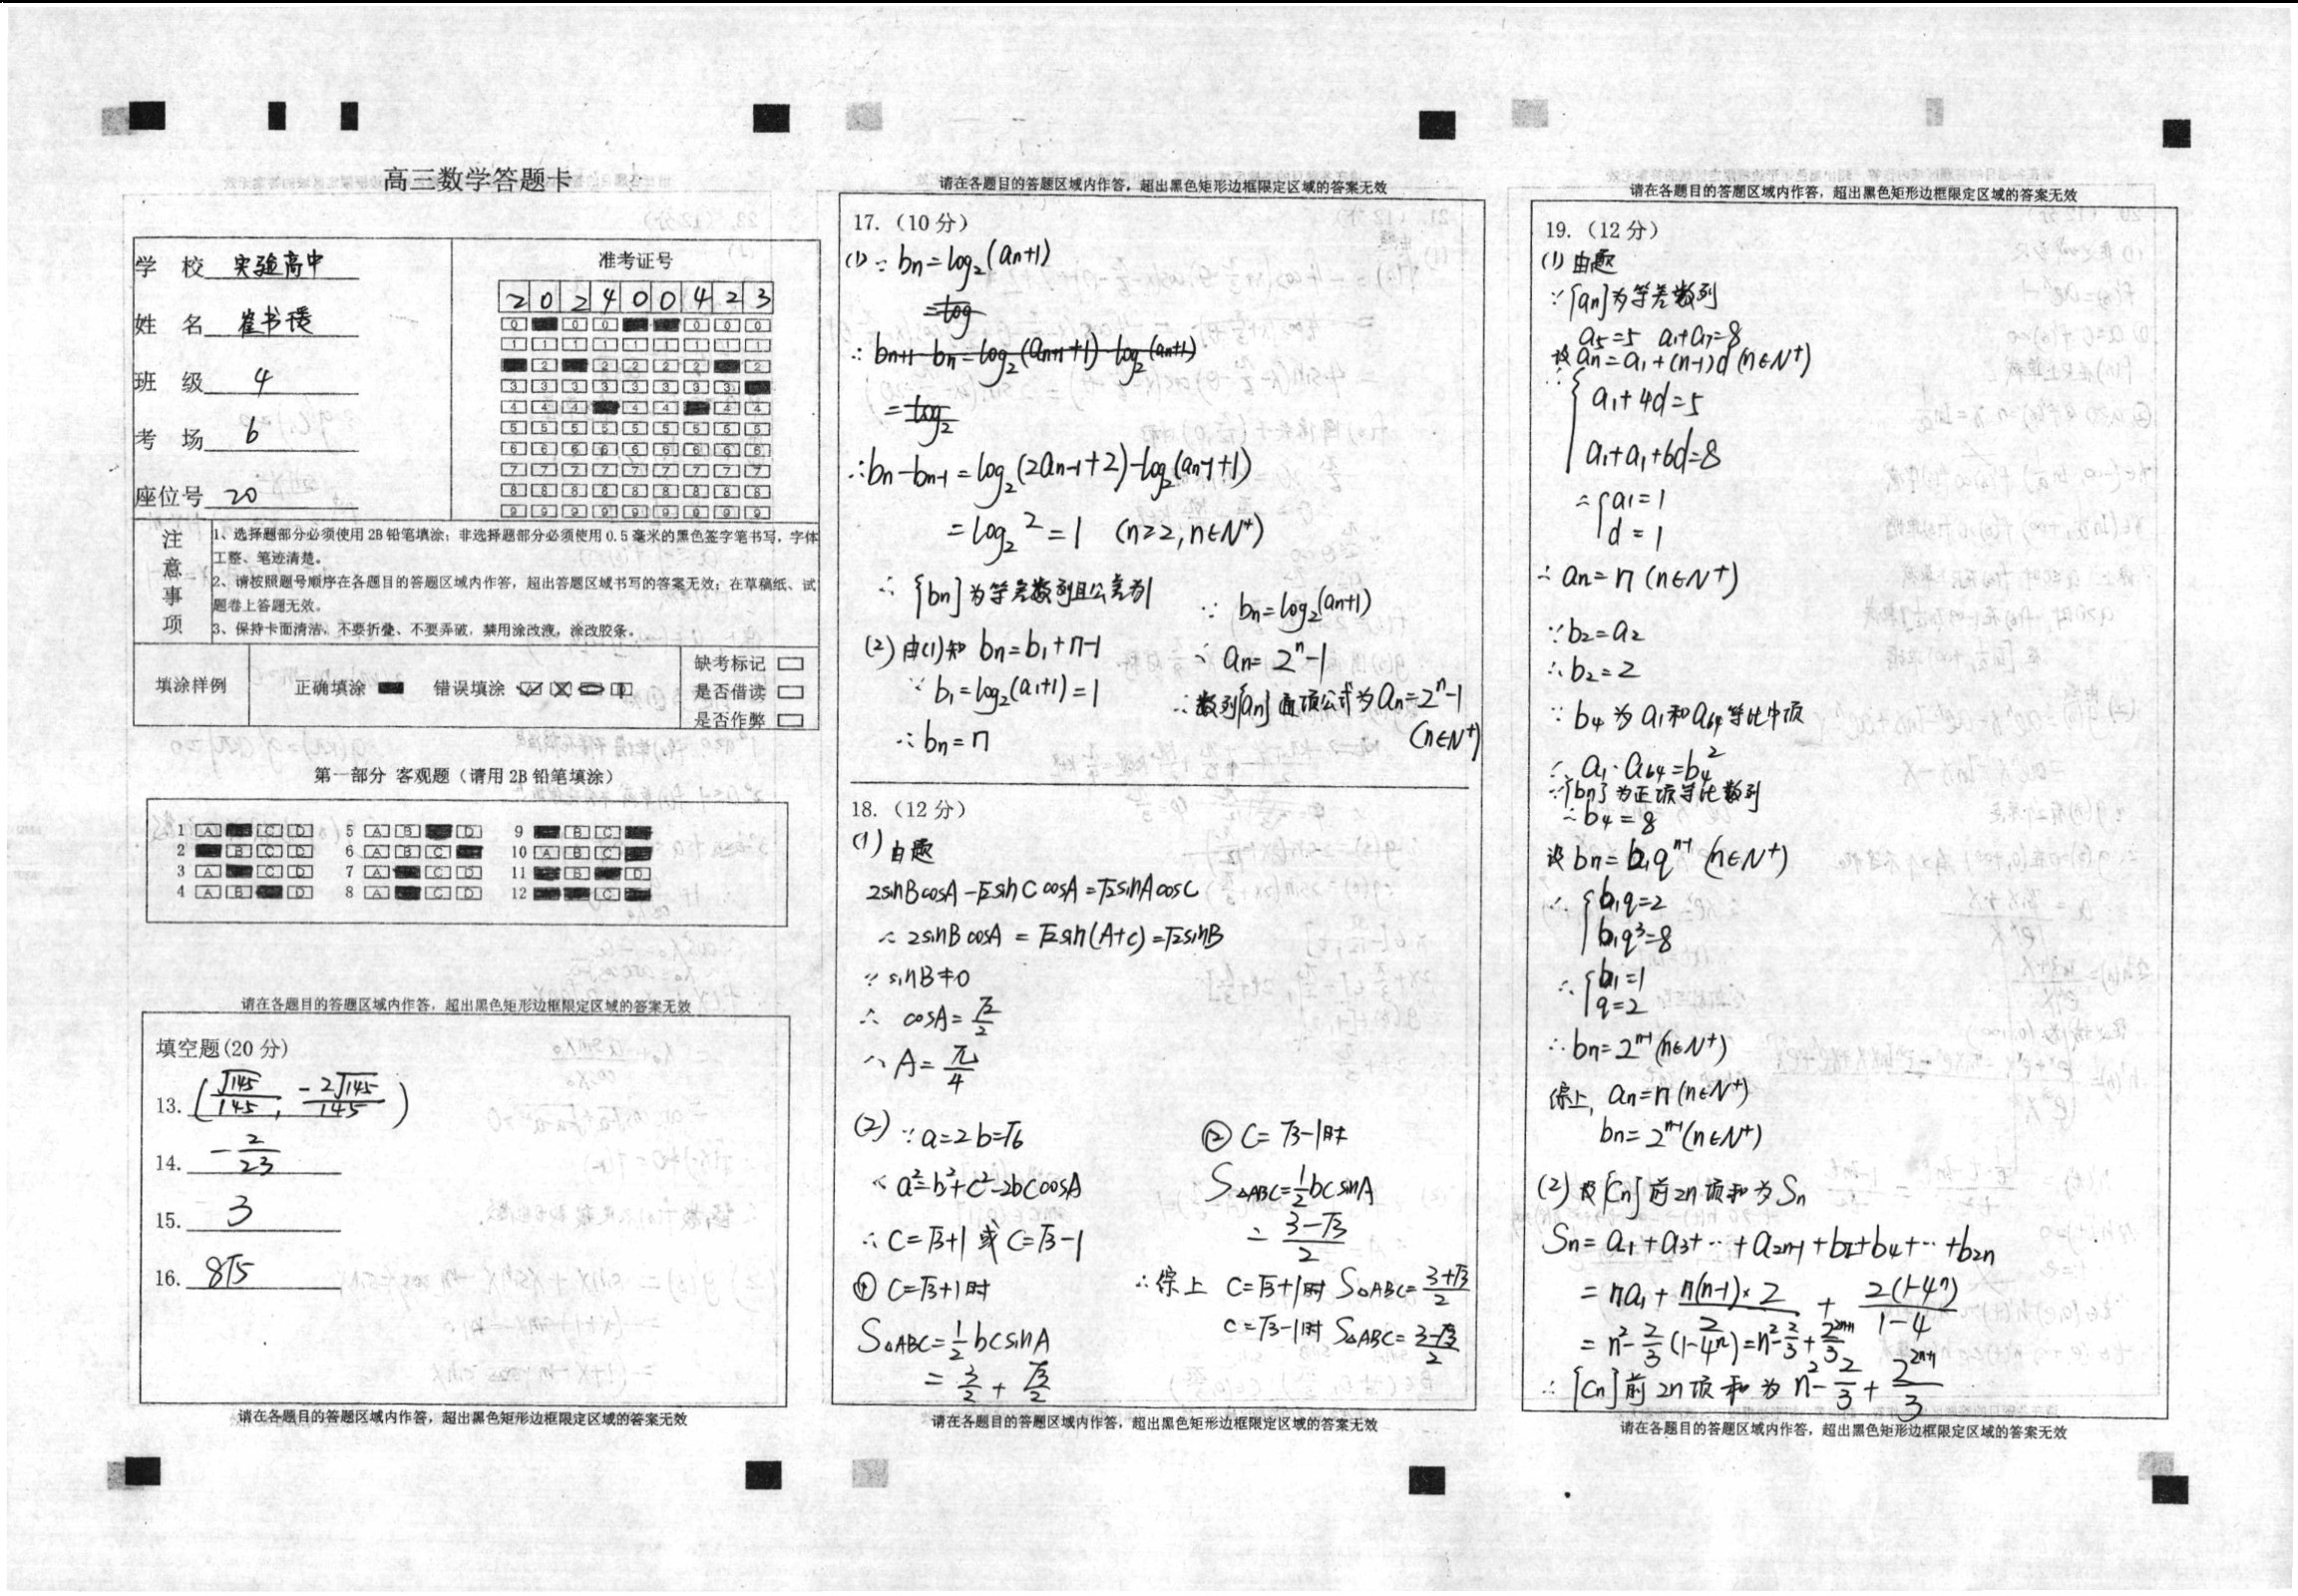 高三数学答题卡
学 校 实验高中
姓 名 崔书
班 级 4
考 场 6
座位号 20
准考证号
2 0 2 4 0 0 4 2 3
0 0 0 0 0 0
1 1 1 1 1 1 1 1 1
2 2 2 2 2 2
3 3 3 3 3 3 3 3
4 4 4 4 4 4 4
5 5 5 5 5 5 5 5 5
6 6 6 6 6 6 6 6 6
7 7 7 7 7 7 7 7 7
8 8 8 8 8 8 8 8 8
9 9 9 9 9 9 9 9 9
注意事项
1、选择题部分必须使用 2B 铅笔填涂；非选择题部分必须使用 0.5 毫米的黑色签字笔书写，字体
工整、笔迹清楚。
2、请按照题号顺序在各题目的答题区域内作答，超出答题区域书写的答案无效；在草稿纸、试
题卷上答题无效。
3、保持卡面清洁，不要折叠、不要弄破，禁用涂改液，涂改胶条。
填涂样例 正确填涂 错误填涂
缺考标记
是否借读
是否作弊
第一部分 客观题（请用 2B 铅笔填涂）
1 A C D 5 A B D 9 B C
2 B C D 6 A B C 10 A B C
3 A C D 7 A C D 11 B D
4 A B D 8 A C D 12 C
请在各题目的答题区域内作答，超出黑色矩形边框限定区域的答案无效
填空题(20 分)
13. (√145/145, -2√145/145)
14. -2/23
15. 3
16. 8√5
请在各题目的答题区域内作答，超出黑色矩形边框限定区域的答案无效
请在各题目的答题区域内作答，超出黑色矩形边框限定区域的答案无效
17.（10 分）
(1) ∵ bn=log₂(an+1)
=log
∴ bn+1-bn=log₂(an+1+1)-log₂(an+1)
=log₂
∴bn-bn-1=log₂(2an-1+2)-log₂(an-1+1)
=log₂2=1 (n≥2, n∈N⁺)
∴ {bn}为等差数列且公差为1
(2) 由(1)知 bn=b₁+n-1
∵ b₁=log₂(a₁+1)=1
∴ bn=n
∵ bn=log₂(an+1)
∴ an=2ⁿ-1
∴数列{an}通项公式为an=2ⁿ-1
(n∈N⁺)
18.（12 分）
(1) 由题
2sinBcosA-√2sinCcosA=√2sinAcosC
∴ 2sinBcosA=√2sin(A+C)=√2sinB
∵ sinB≠0
∴ cosA=√2/2
∴ A=π/4
(2) ∵a=2 b=√6
∵ a²=b²+c²-2bccosA
∴ c=√3+1 或 c=√3-1
① c=√3+1时
S△ABC=1/2bcsinA
=3/2+√3/2
② c=√3-1时
S△ABC=1/2bcsinA
=(3-√3)/2
∴综上 c=√3+1时 S△ABC=(3+√3)/2
c=√3-1时 S△ABC=(3-√3)/2
请在各题目的答题区域内作答，超出黑色矩形边框限定区域的答案无效
请在各题目的答题区域内作答，超出黑色矩形边框限定区域的答案无效
19.（12 分）
(1) 由题
∵{an}为等差数列
a₅=5 a₁+a₇=8
设an=a₁+(n-1)d (n∈N⁺)
∴ { a₁+4d=5
a₁+a₁+6d=8
∴ { a₁=1
d=1
∴ an=n (n∈N⁺)
∵b₂=a₂
∴b₂=2
∵ b₄为a₁和a₆₄等比中项
∴ a₁·a₆₄=b₄²
∵{bn}为正项等比数列
∴b₄=8
设bn=b₁qⁿ⁻¹ (n∈N⁺)
∴ { b₁q=2
b₁q³=8
∴ { b₁=1
q=2
∴bn=2ⁿ⁻¹(n∈N⁺)
综上, an=n(n∈N⁺)
bn=2ⁿ⁻¹(n∈N⁺)
(2) 设{Cn}前2n项和为Sn
Sn=a₁+a₃+…+a2n-1+b₂+b₄+…+b2n
=na₁+n(n-1)×2/2+2(1-4ⁿ)/(1-4)
=n²-2/3(1-4ⁿ)=n²-2/3+2²ⁿ⁺¹/3
∴ {Cn}前2n项和为n²-2/3+2²ⁿ⁺¹/3
请在各题目的答题区域内作答，超出黑色矩形边框限定区域的答案无效